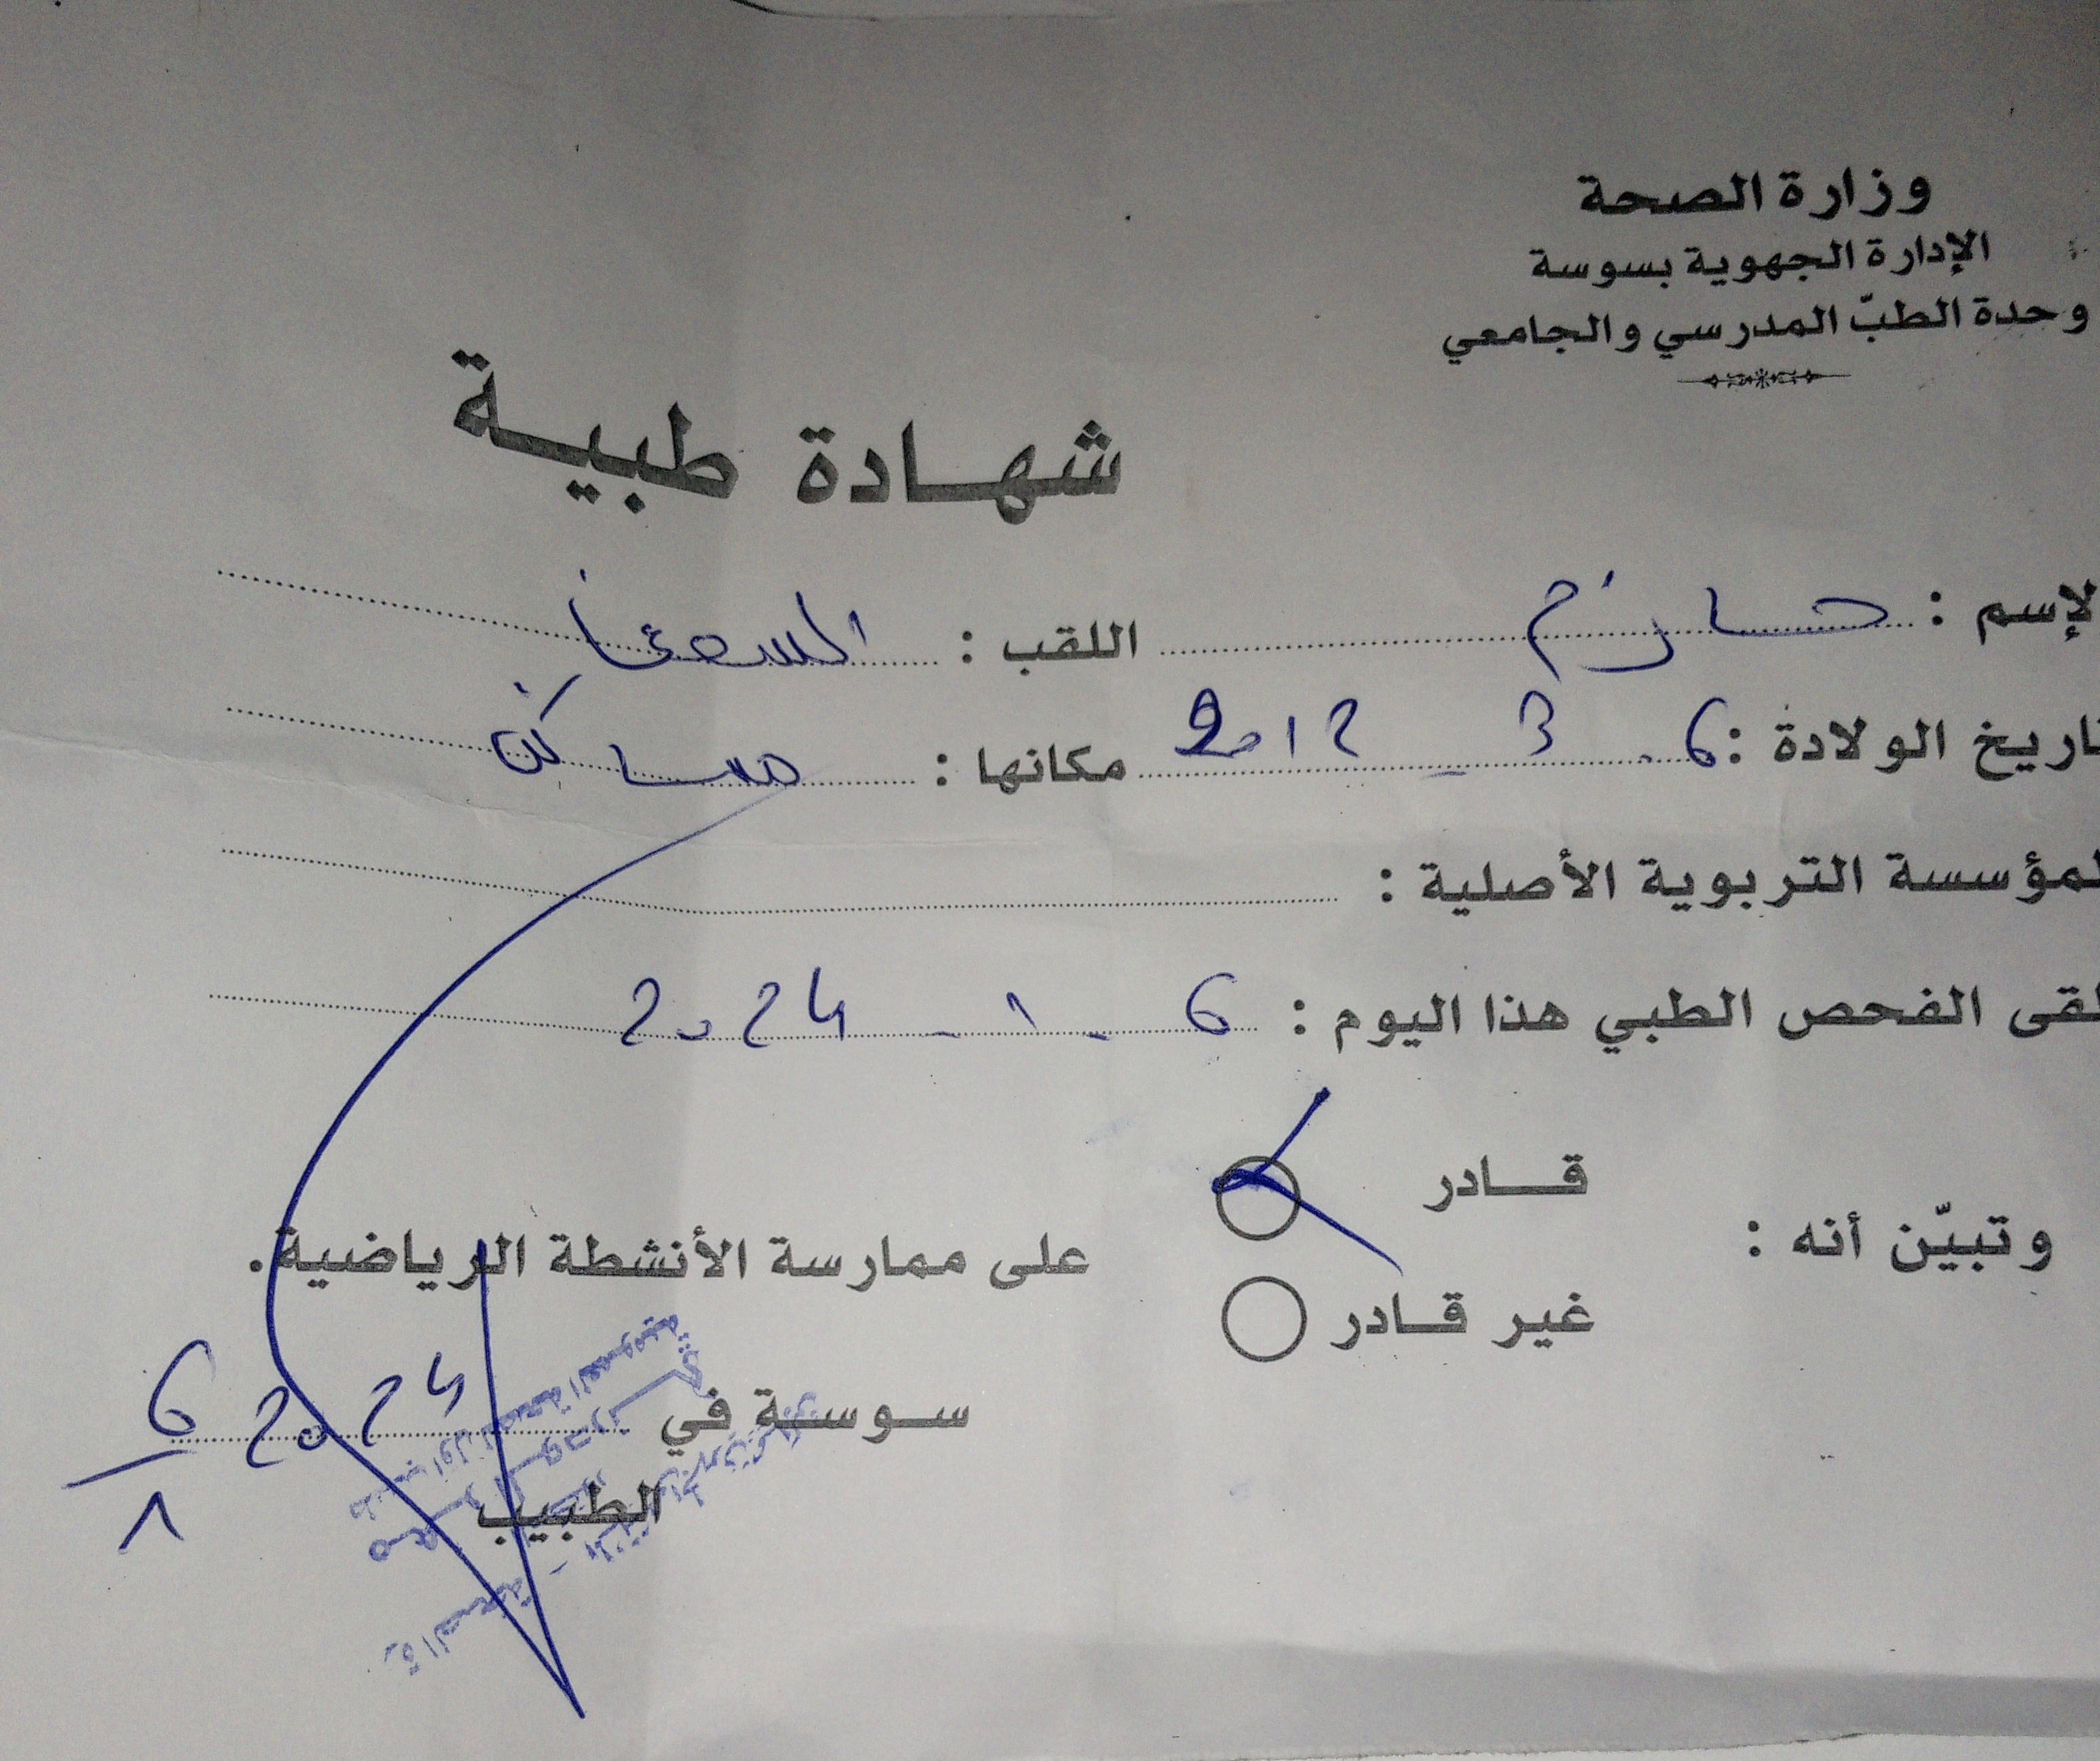 وزارة الصحة
الإدارة الجهوية بسوسة
وحدة الطبّ المدرسي والجامعي
شهادة طبية
لإسم : حازم اللقب :
تاريخ الولادة : 6 - 3 - 2012 مكانها : مساكن
لمؤسسة التربوية الأصلية :
لقى الفحص الطبي هذا اليوم : 6 - 1 - 2024
وتبيّن أنه :
قادر
غير قادر
على ممارسة الأنشطة الرياضية.
سوسة في 6/1 2024
الطبيب